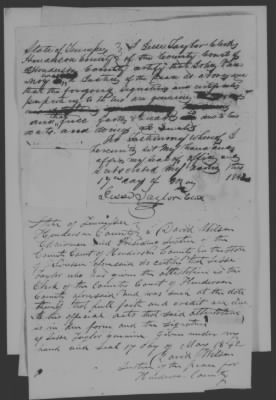 State of Tennessee } I Jesse Taylor Clerk
Henderson County } of the County Court of
Henderson County certify that John
Justice of the Peace is above
that the foregoing signature and certificate
purporting to be his are genuine
and that full faith and credit is due to his
acts and doings as such
In testimony whereof I
hereunto set my hand and
affix my seal of office and
Subscribed my name this
17th day of May 1842
Jesse Taylor Clk
State of Tennessee
Henderson County } I David Wilson
Chairman and Presiding Justice of the
County Court of Henderson County in the State
of Tennessee aforesaid do certify that Jesse
Taylor who has given the attestation is the
Clerk of the County Court of Henderson
County aforesaid and was such at the date
thereof that full faith and credit are due
to his official acts that said attestation
is in due form and the signature
of Jesse Taylor genuine Given under my
hand and seal 17 day of May 1842
David Wilson
Justice of the peace for
Henderson County